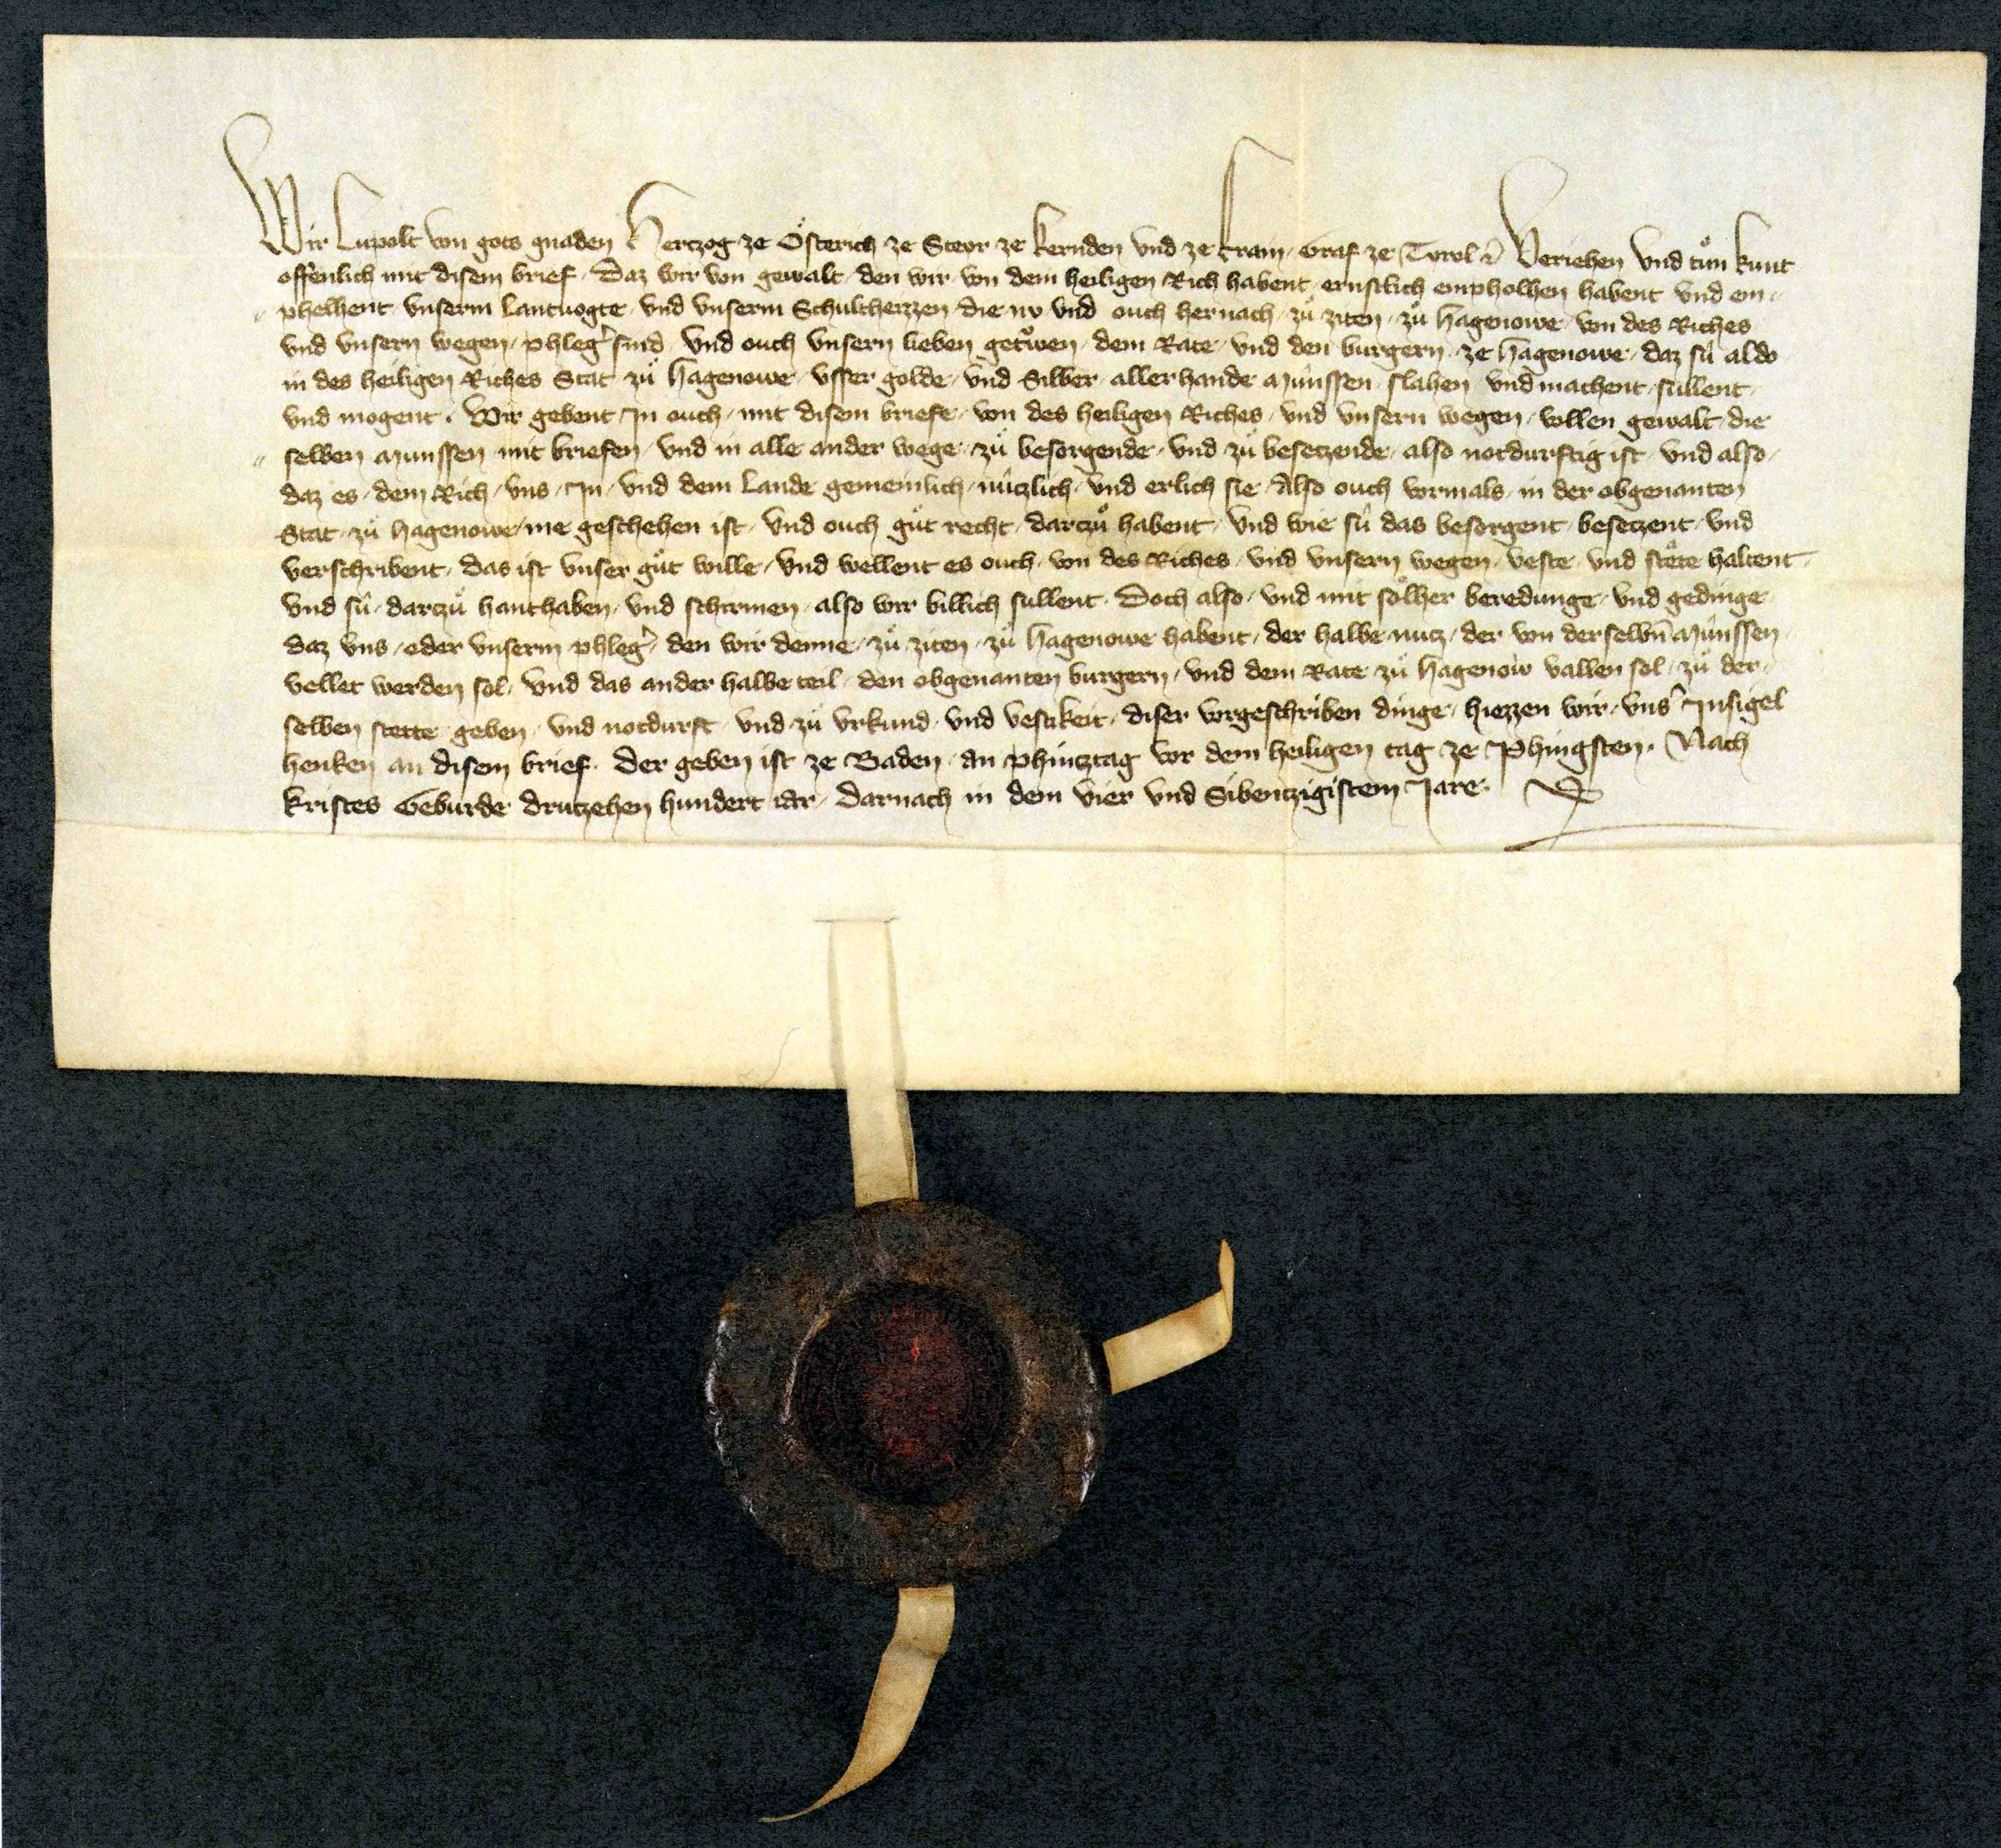 Wir Lupolt von gots gnaden Hertzog ze Ôsterich ze Steyr ze kernden vnd ze kram, Graf ze Tyrol ꝛc Veriehen vnd tuͦn kunt
offenlich mit disem brief. Daz wir von gewalt, den wir von dem heiligen Rich habent, ernstlich empholhen habent vnd em=
phelhent vnserm Lantuogte vnd vnserm Schultheizzen, die nv vnd ouch hernach zuͦ ziten zuͦ hagenowe von des Riches
vnd vnsern wegen, phleg᾽ sind vnd ouch vnsern lieben getrwen dem Rate vnd den burgern ze hagenowe, daz sü aldo
in des heiligen Riches Stat zuͦ hagenowe vsser golde vnd Silber aller hande Münssen slahen vnd machent süllent
vnd mogent. Wir gebent In ouch mit disem briefe von des heiligen Riches vnd vnsern wegen vollen gewalt die
selben Münssen mit briefen vnd in alle ander wege zuͦ besorgende vnd zuͦ besetzende, also notdurftig ist vnd also,
daz es dem Rich, vns, In vnd dem Lande gemeinlich nützlich vnd erlich sie, Also ouch vormals in der obgenanten
Stat zuͦ hagenowe me geschehen ist, vnd ouch guͦt recht darczuͦ habent, vnd wie sü das besorgent besetzent vnd
verschribent, das ist vnser guͦt wille, vnd wellent es ouch von des Riches vnd vnsern wegen veste vnd stete haltent
vnd sü darczuͦ hanthaben vnd schirmen also wir billich süllent. Doch also vnd mit sölher beredunge vnd gedinge
daz vns oder vnserm phleg᾽ den wir denne zuͦ ziten zuͦ hagenowe habent, der halbe nutz, der von der selbn̄ Münssen
vellet werden sol, vnd das ander halbe teil den obgenanten burgern vnd dem Rate zuͦ hagenow vallen sol zuͦ der
selben stette geben vnd notdurft vnd zuͦ vrkund vnd vestikeit diser vorgeschriben dinge hiezzen wir vns᾽ Insigel
henken an disem brief. Der geben ist ze Baden an phintztag vor dem heiligen tag ze Phingsten. Nach
kristes Geburde drutzehen hundert iar, Darnach in dem vier vnd Sibentzigistem Jare.